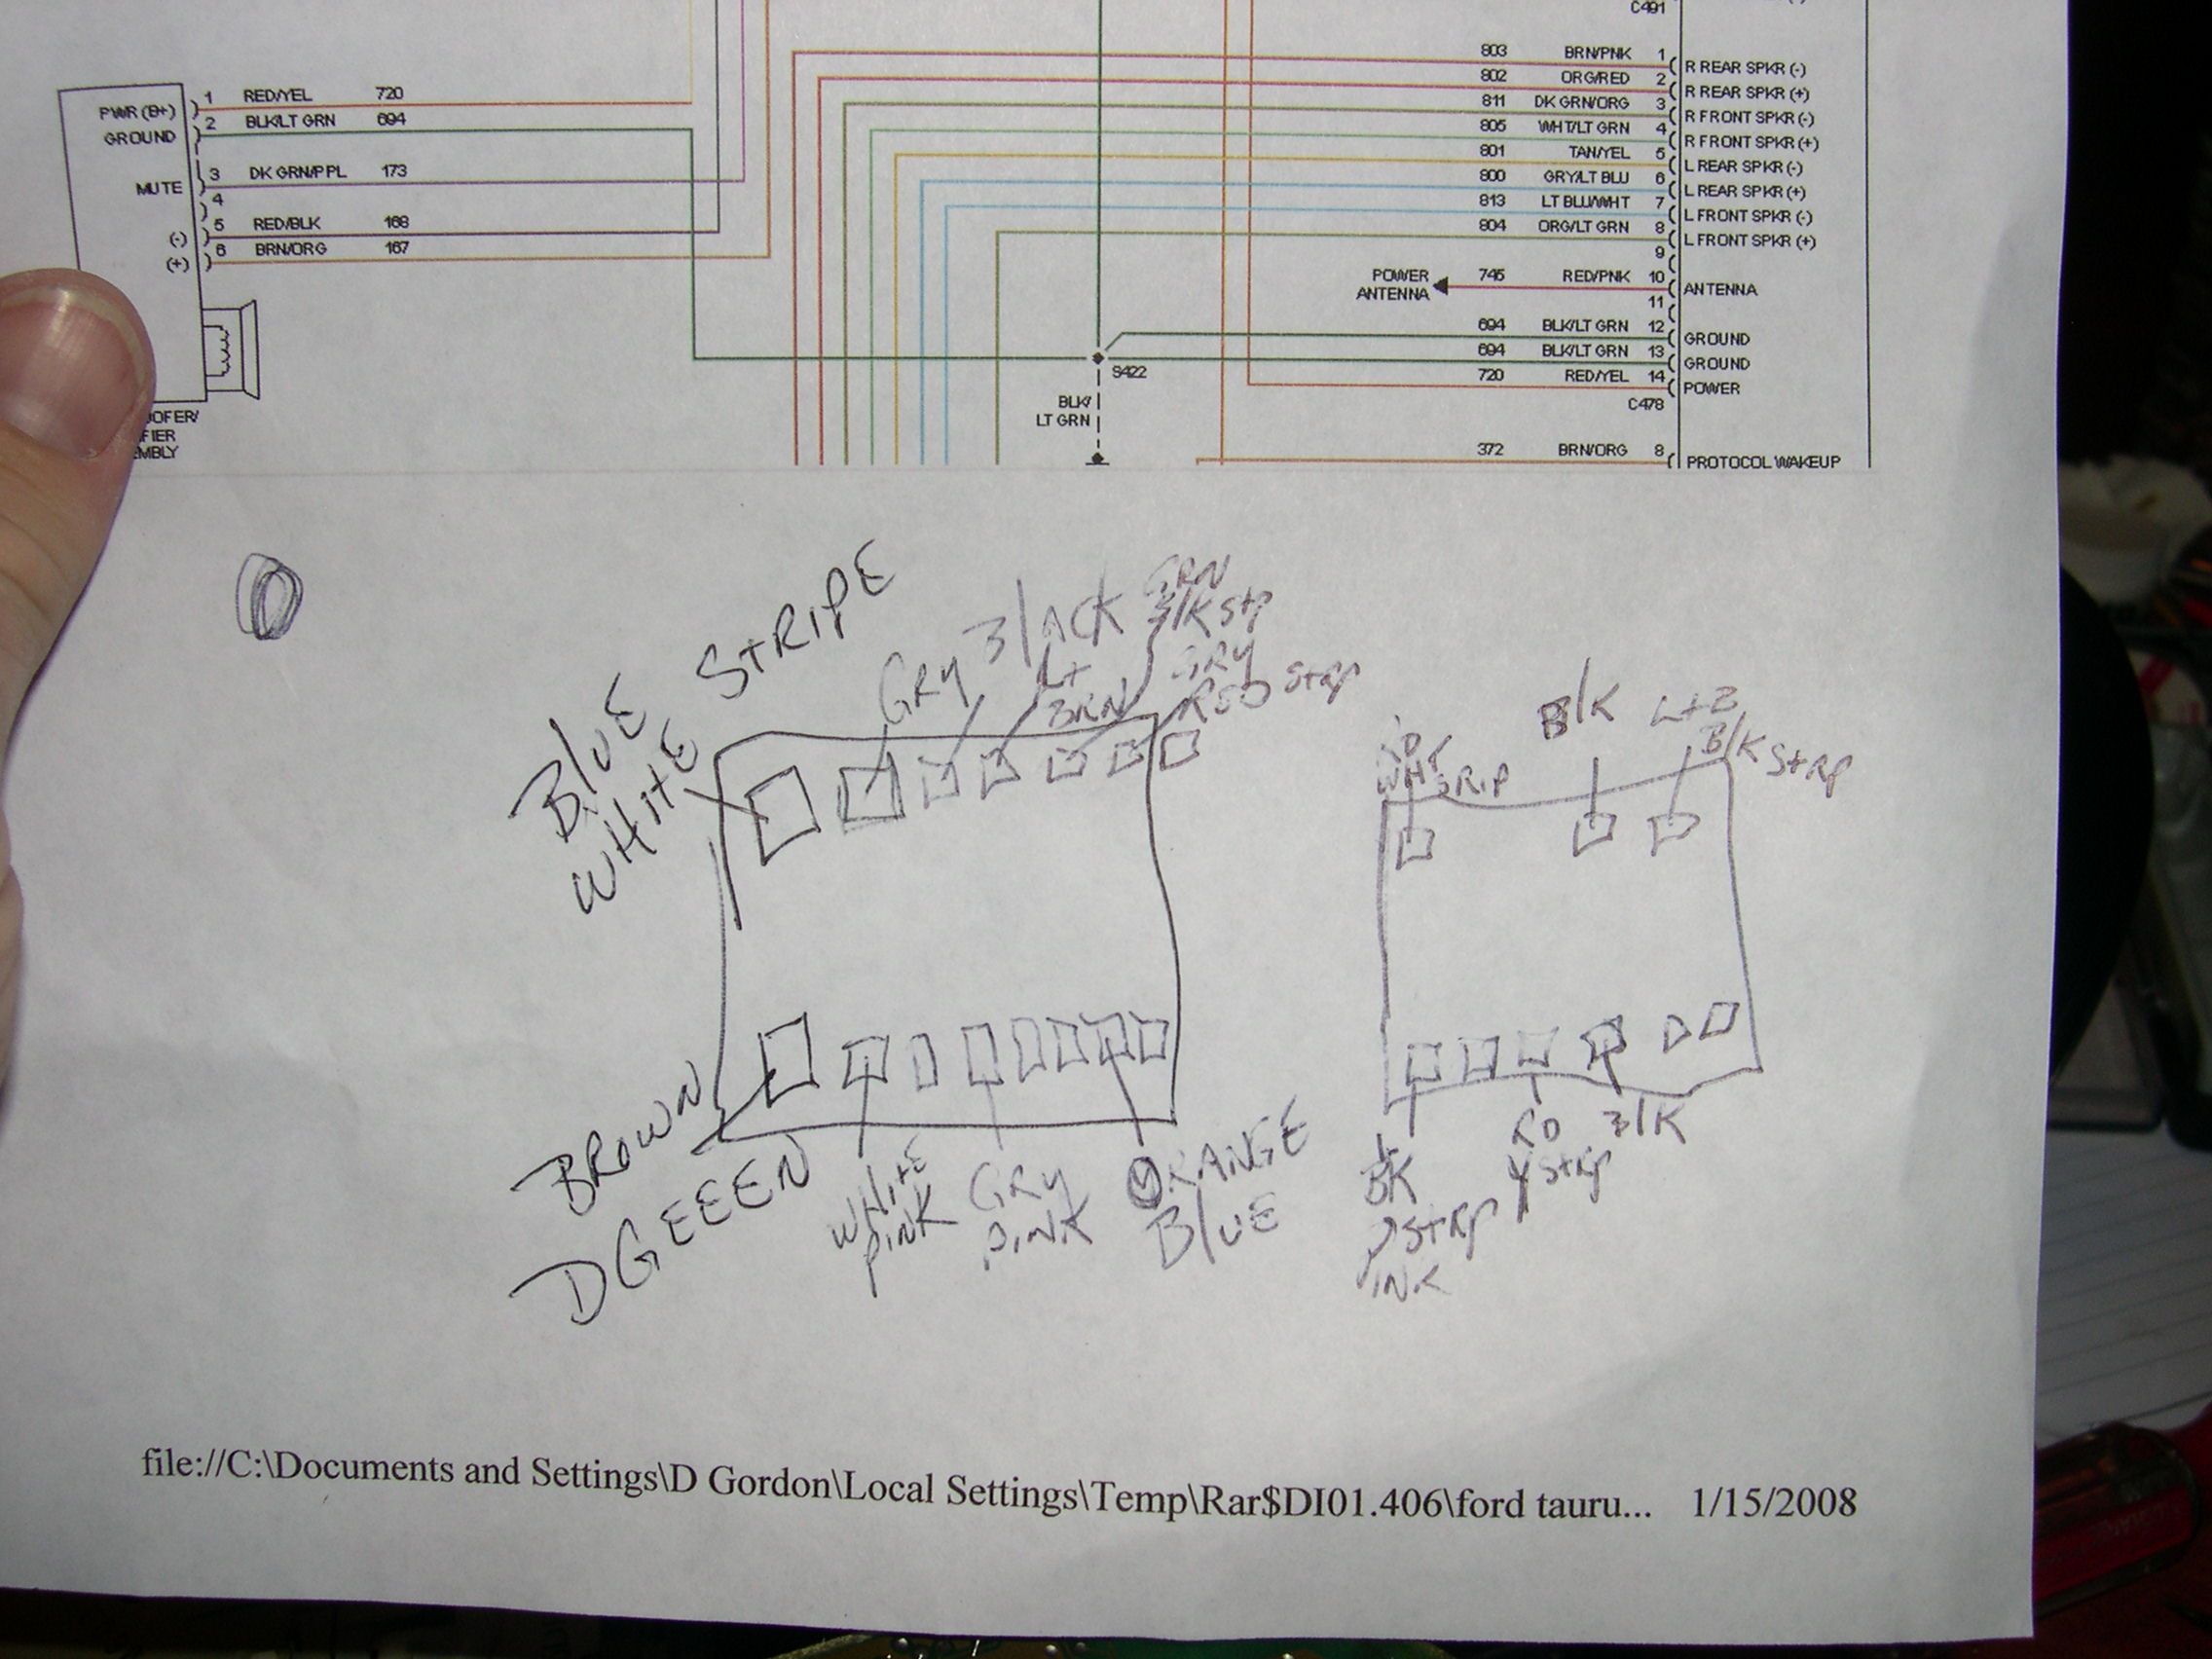 C491
803 BRN/PNK 1 R REAR SPKR (-)
802 ORG/RED 2 R REAR SPKR (+)
811 DK GRN/ORG 3 R FRONT SPKR (-)
805 WHT/LT GRN 4 R FRONT SPKR (+)
801 TAN/YEL 5 L REAR SPKR (-)
800 GRY/LT BLU 6 L REAR SPKR (+)
813 LT BLU/WHT 7 L FRONT SPKR (-)
804 ORG/LT GRN 8 L FRONT SPKR (+)
9
POWER ANTENNA 745 RED/PNK 10 ANTENNA
11
694 BLK/LT GRN 12 GROUND
694 BLK/LT GRN 13 GROUND
720 RED/YEL 14 POWER
C478
372 BRN/ORG 8 PROTOCOL WAKEUP
PWR (B+) 1 RED/YEL 720
GROUND 2 BLK/LT GRN 694
MUTE 3 DK GRN/PPL 173
4
(-) 5 RED/BLK 168
(+) 6 BRN/ORG 167
OOFER/
IFIER
EMBLY
S422
BLK/
LT GRN
BlUE
WHitE StRIPE
GRY
BlACK
Lt
BRN
GRN
BlK Stp
GRY
RED StRp
RD
WHT
StRIP
BlK
Lt B
BlK StRp
BROWN
DGEEEN
WHitE
PiNK
GRY
PiNK
ORANGE
BlUE
BK
StRp
PINK
RD
Y StRp
BlK
file://C:\Documents and Settings\D Gordon\Local Settings\Temp\Rar$DI01.406\ford tauru... 1/15/2008